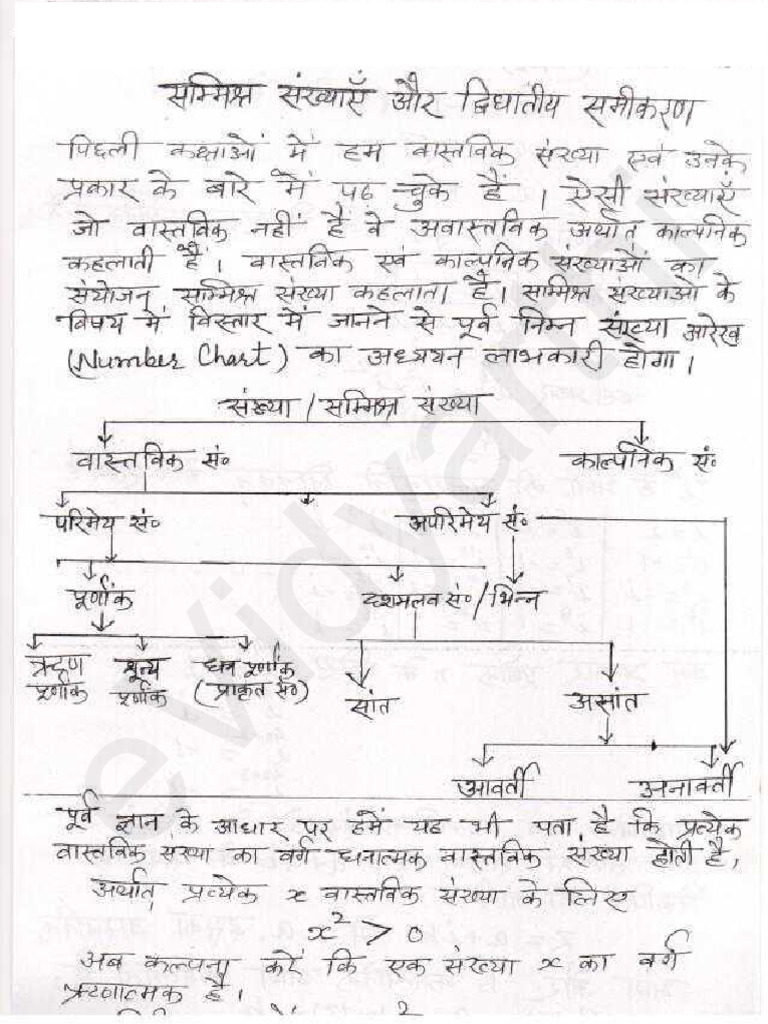 सम्मिश्र संख्याएँ और द्विघातीय समीकरण
पिछली कक्षाओं में हम वास्तविक संख्या एवं उनके
प्रकार के बारे में पढ़ चुके हैं । ऐसी संख्याएँ
जो वास्तविक नहीं हैं वे अवास्तविक अर्थात काल्पनिक
कहलाती हैं । वास्तविक एवं काल्पनिक संख्याओं का
संयोजन सम्मिश्र संख्या कहलाता है । सम्मिश्र संख्याओं के
विषय में विस्तार में जानने से पूर्व निम्न संख्या आरेख
(Number Chart) का अध्ययन लाभकारी होगा ।
संख्या / सम्मिश्र संख्या
वास्तविक सं० काल्पनिक सं०
परिमेय सं० अपरिमेय सं०
पूर्णांक दशमलव सं० / भिन्न
ऋण पूर्णांक शून्य पूर्णांक धन पूर्णांक (प्राकृत सं०) सांत असांत
आवर्ती अनावर्ती
पूर्व ज्ञान के आधार पर हमें यह भी पता है कि प्रत्येक
वास्तविक संख्या का वर्ग धनात्मक वास्तविक संख्या होती है,
अर्थात् प्रत्येक x वास्तविक संख्या के लिए
x² > 0
अब कल्पना करें कि एक संख्या x का वर्ग
ऋणात्मक है ।
evidyarthi